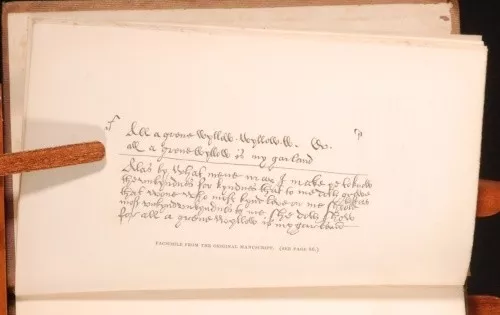 All a grene wyllow. wyllow. w. w.
all a grene wyllow is my garland
Alas by what mene may I make ye to know
the unkyndnes for kyndnes that to me doth growe
that wone who most kynd love on me shold
most unkynd unkyndnes to me she doth show
for all a grene wyllow is my garland
FACSIMILE FROM THE ORIGINAL MANUSCRIPT. (SEE PAGE 86.)